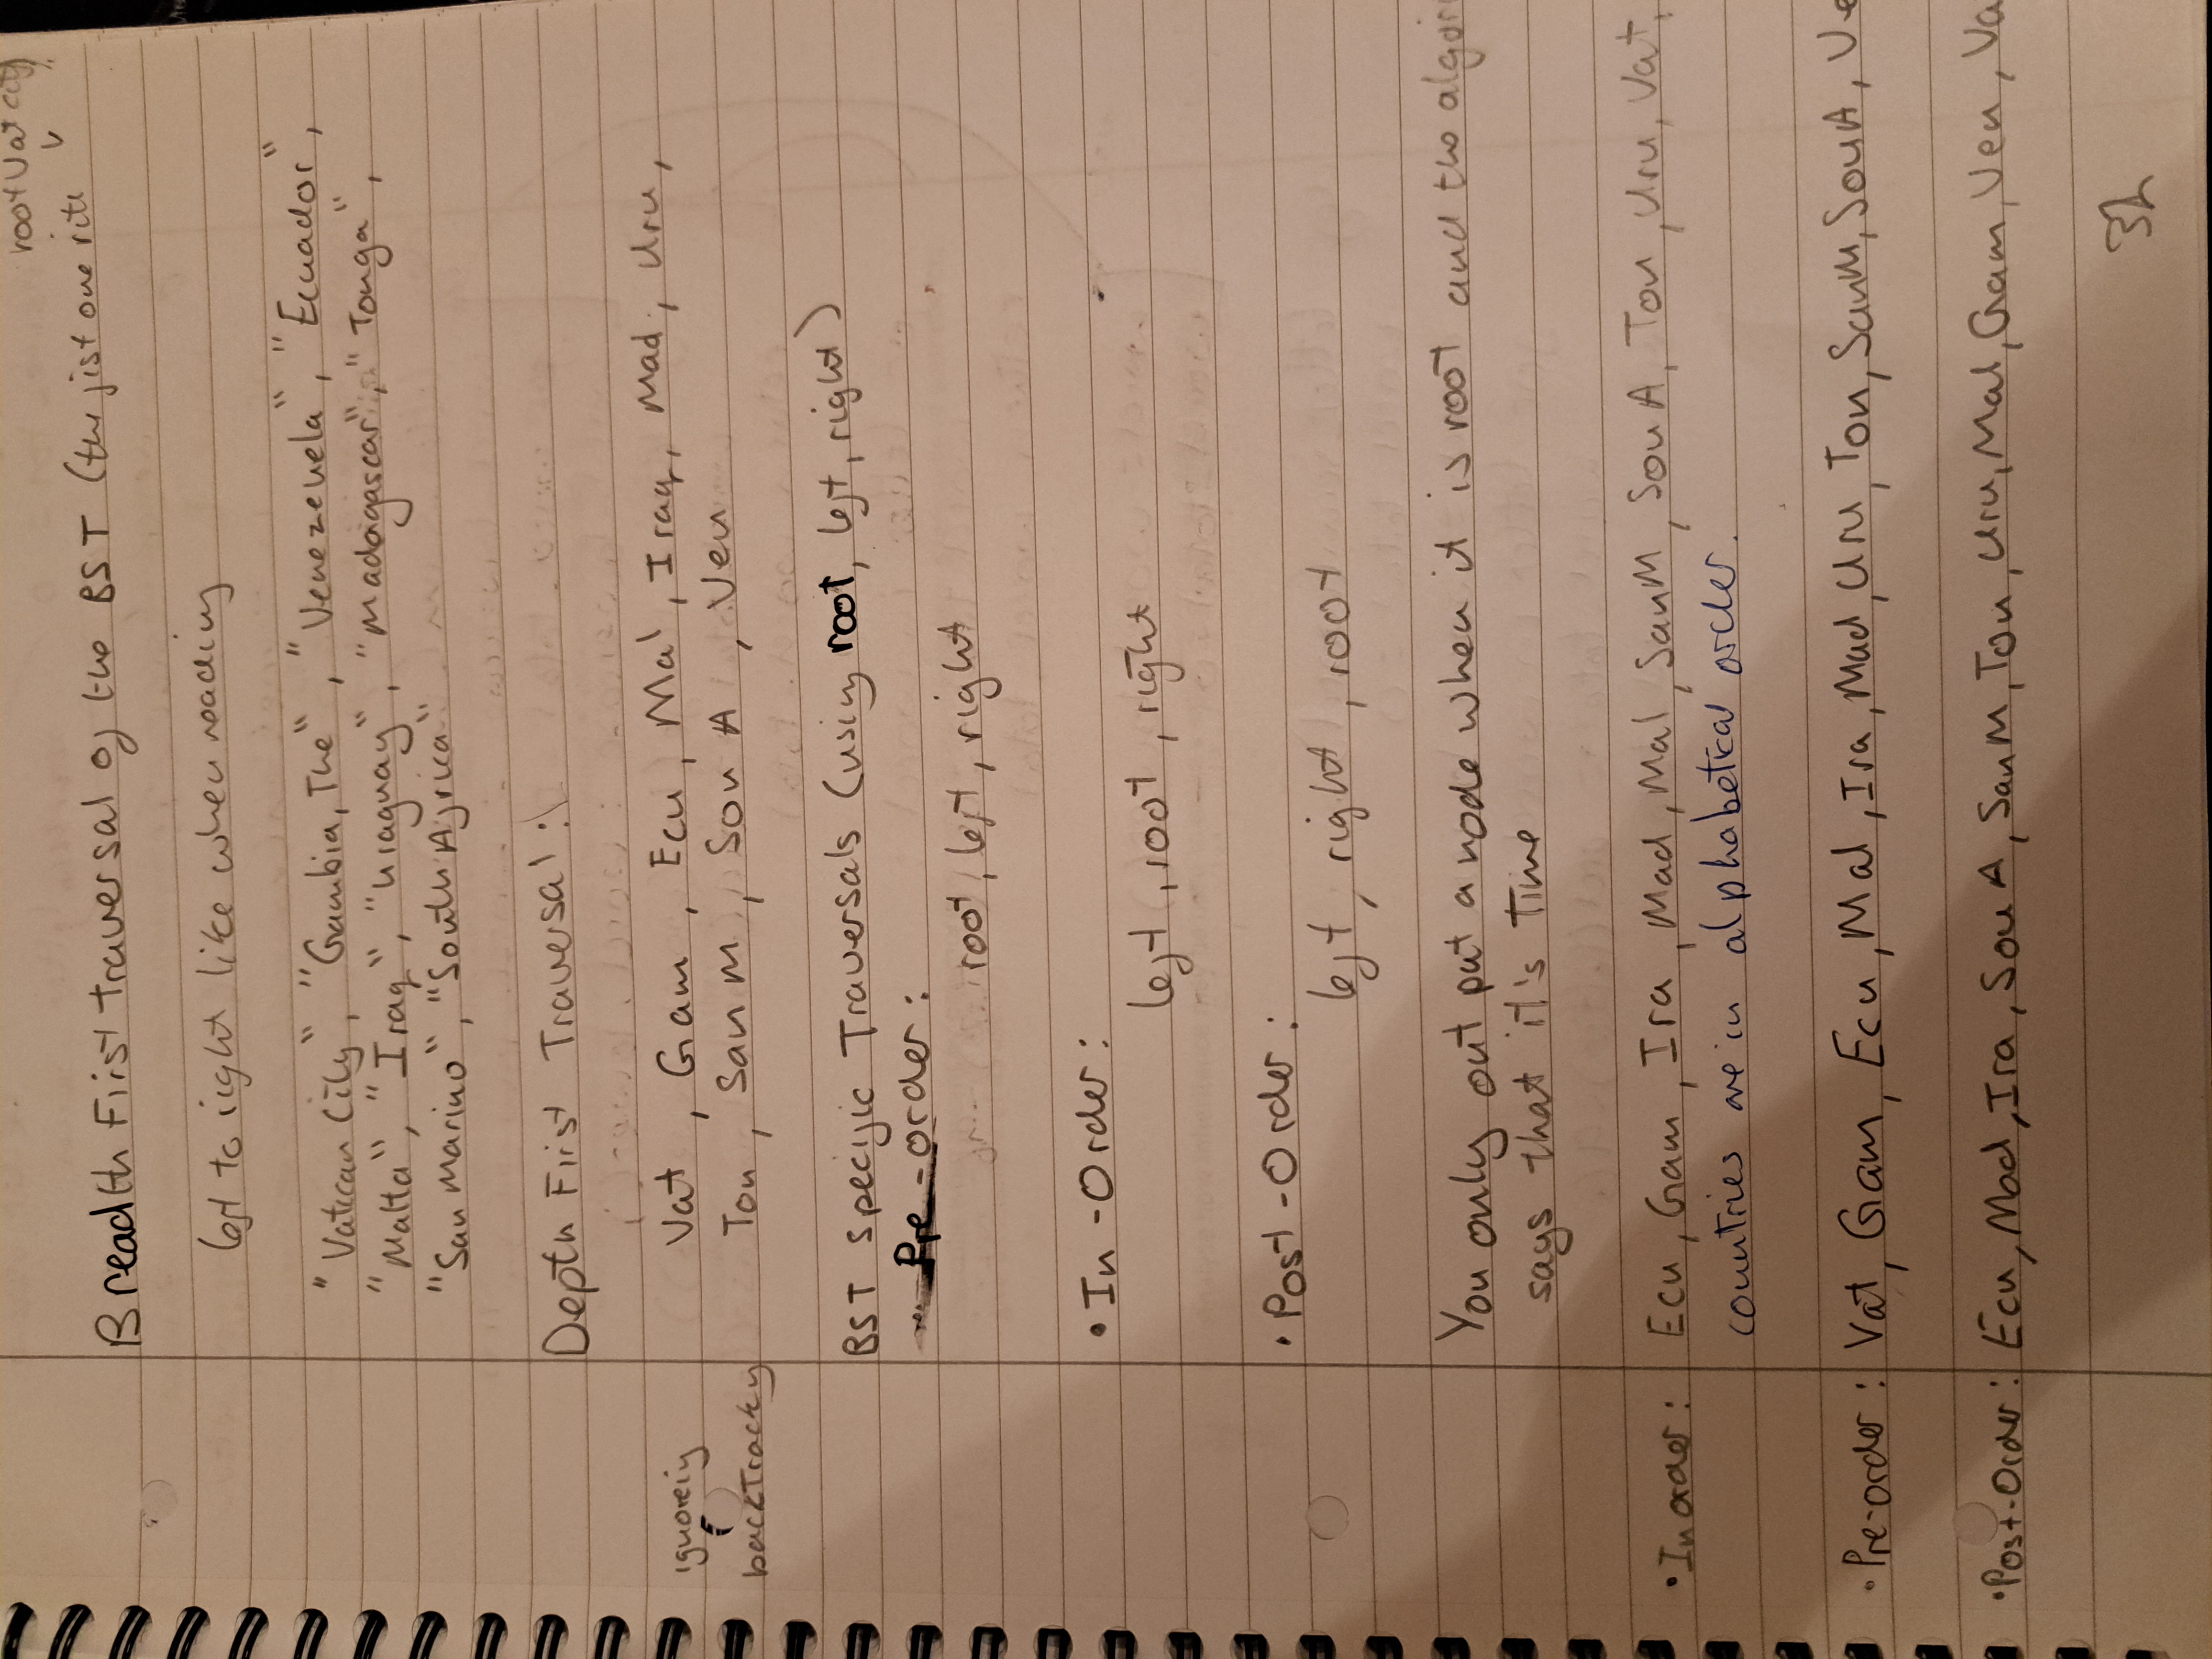 root Vat city
Breadth First traversal of the BST (the fist one
left to right like when reading
"Vatican City", "Gambia, The", "Venezeuela", "Ecuador",
"Malta", "Iraq", "Uraguay", "Madagascar", "Tonga",
"San Marino", "South Africa"
Depth First Traversal:
ignoreing
backTracky
Vat, Gam, Ecu, Mal, Iraq, Mad, Uru,
Ton, San M, Sou A, Ven
BST specific Traversals (using root, left, right)
Pre-order:
root, left, right
• In-Order:
left, root, right
• Post-Order:
left, right, root
You only out put a node when it is root and the algori
says that it's time
• In order: Ecu, Gam, Ira, Mad, Mal, SanM, Sou A, Ton, Uru, Vat,
countries are in alphabetical order.
• Pre-order: Vat, Gam, Ecu, Mal, Ira, Mad, Uru, Ton, SanM, SouA, Ve
• Post-Order: Ecu, Mad, Ira, Sou A, SanM, Ton, Uru, Mal, Gam, Ven, Va